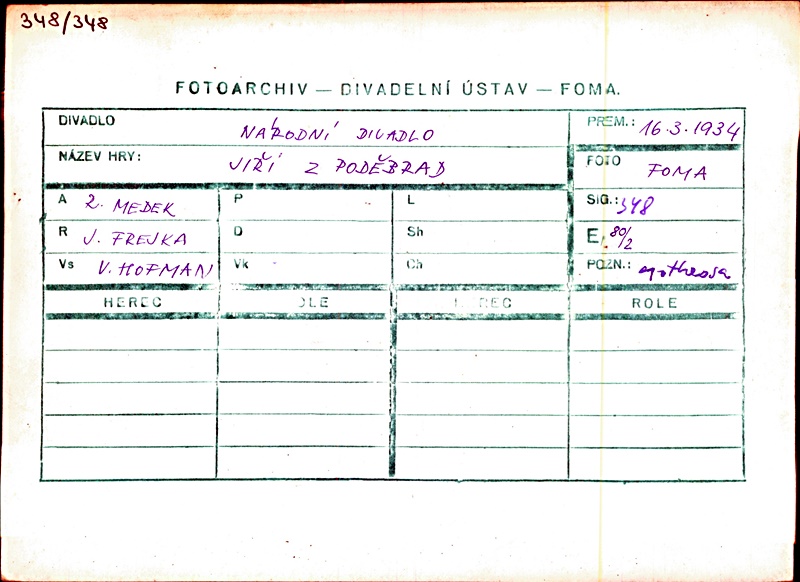 348/348
FOTOARCHIV — DIVADELNÍ ÚSTAV — FOMA.
DIVADLO NÁRODNÍ DIVADLO PREM.: 16.3.1934
NÁZEV HRY: JIŘÍ Z PODĚBRAD FOTO FOMA
A R. MEDEK P L SIG.: 348
R J. FREJKA D Sh E. 80/2
Vs V. HOFMAN Vk Ch POZN.: apotheosa
HEREC ROLE HEREC ROLE